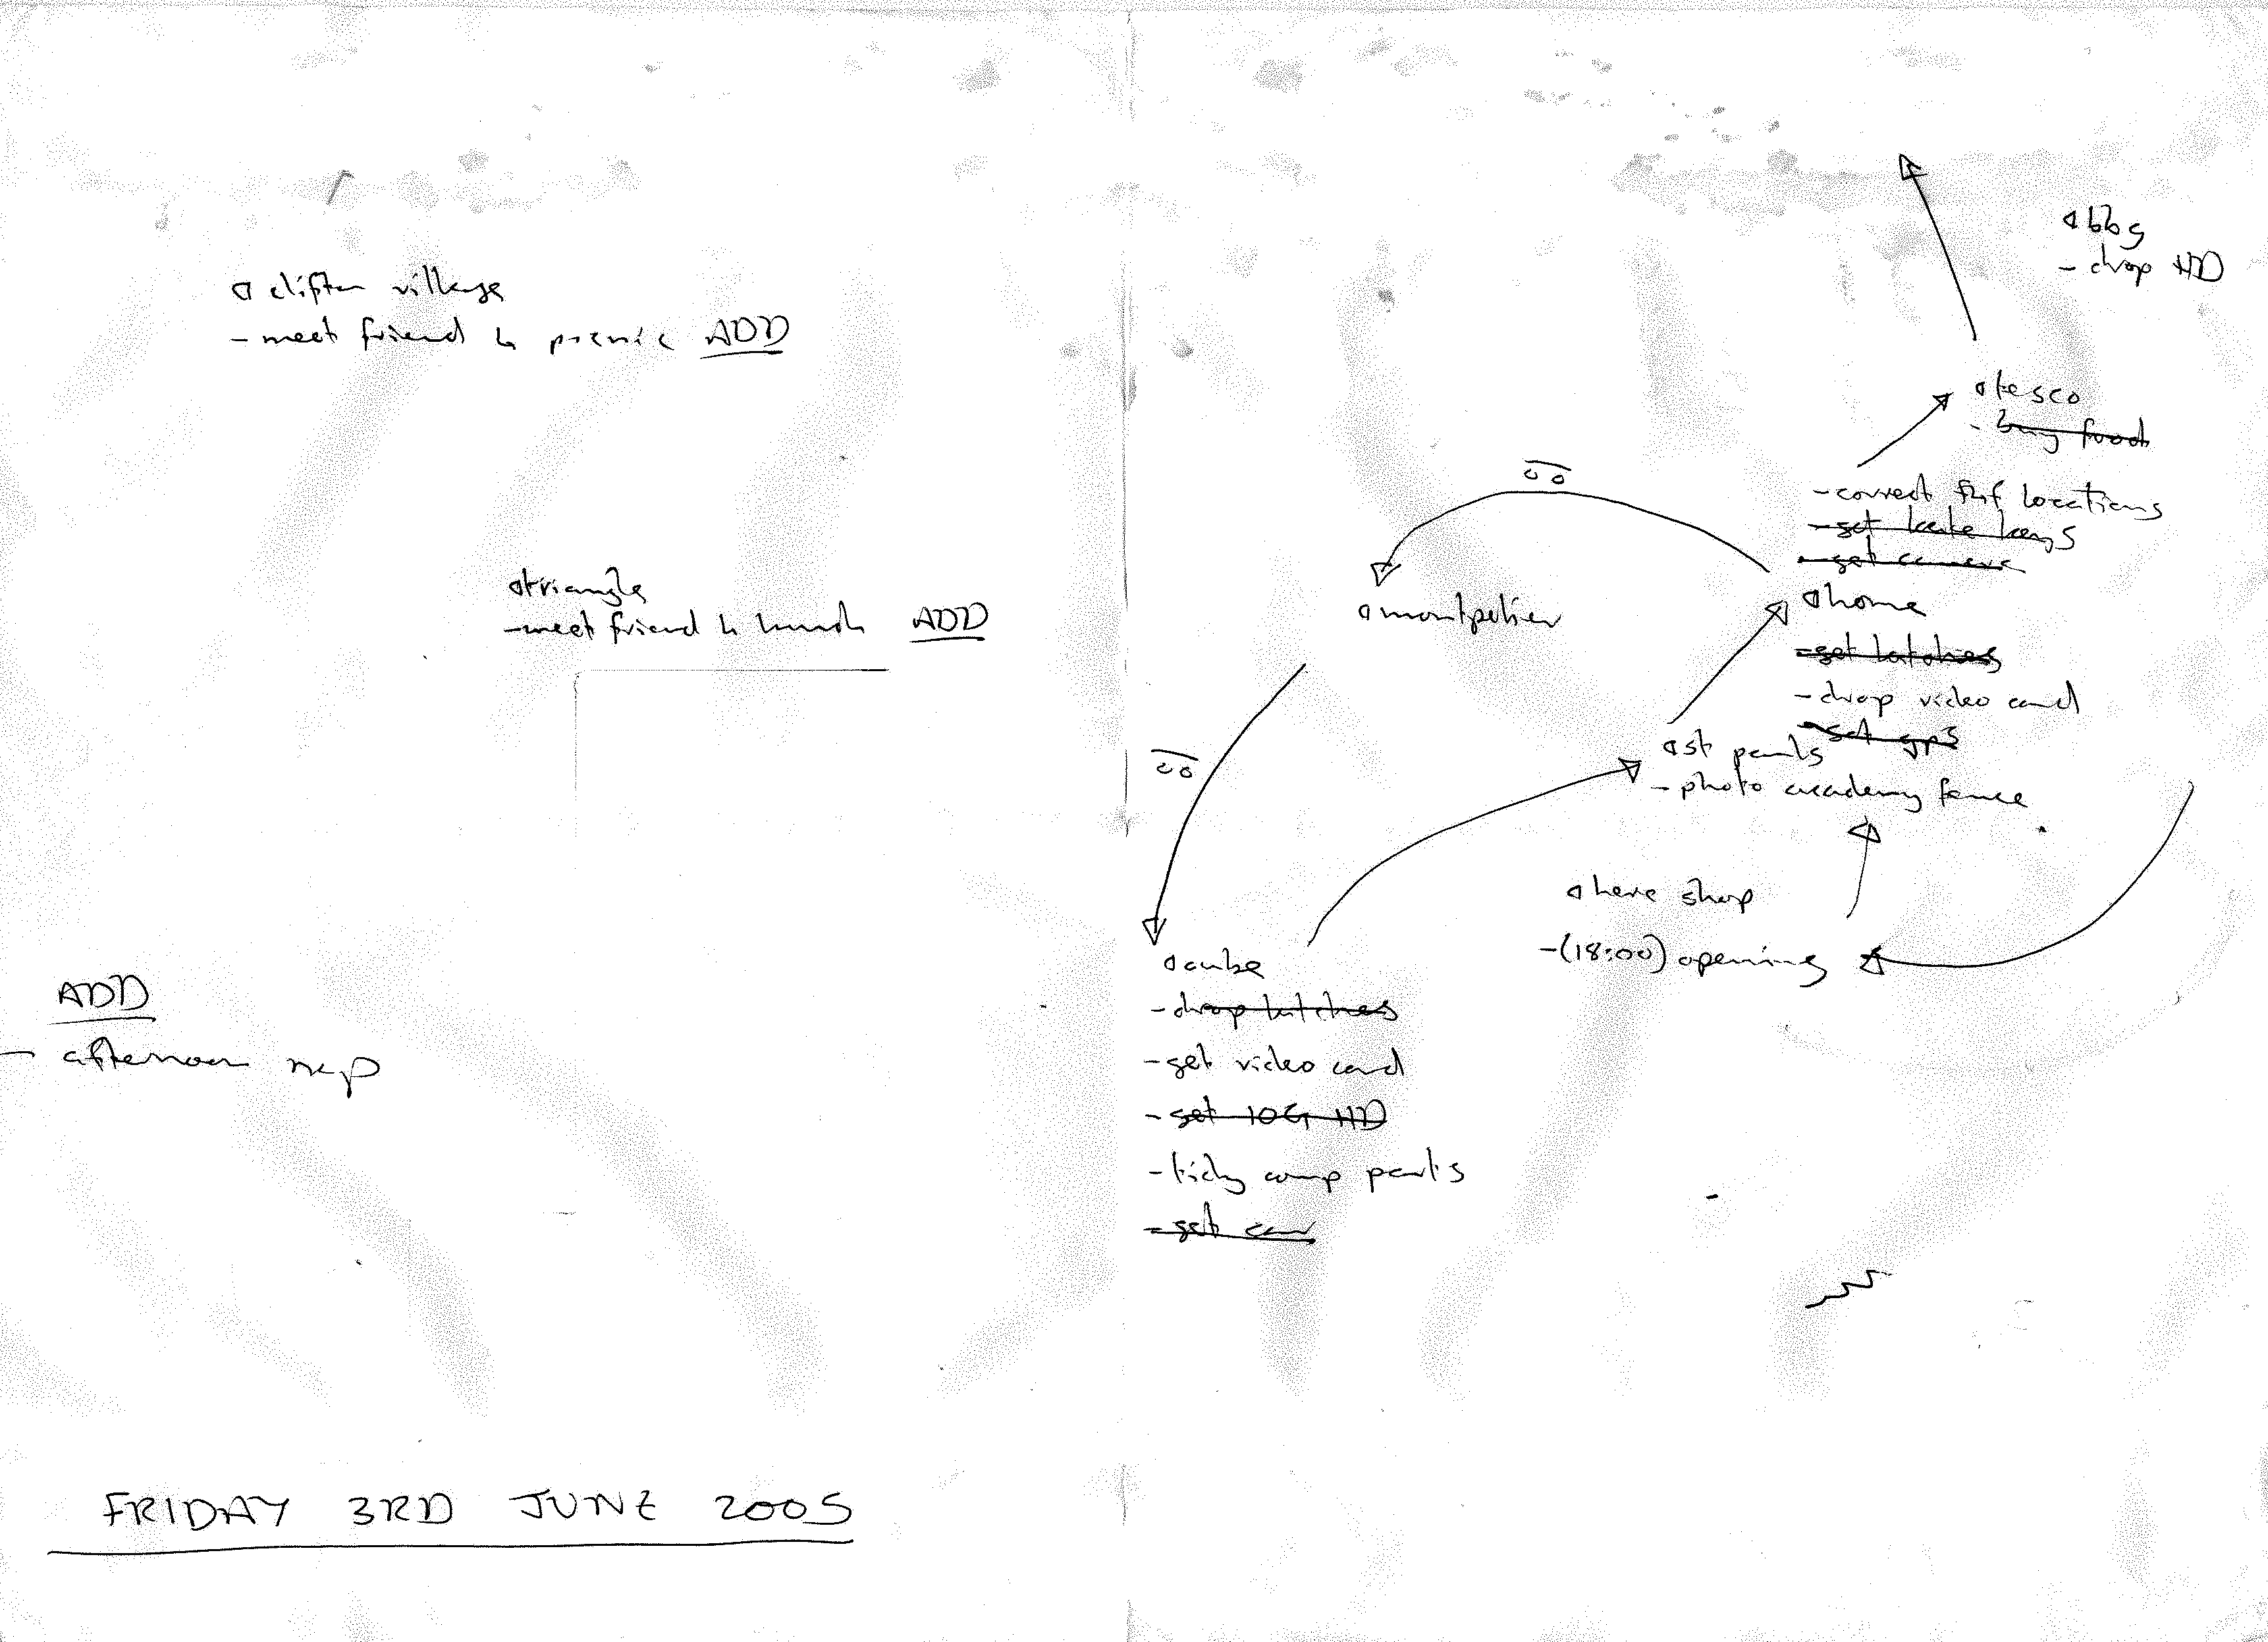 clifton village
- meet friend 4 picnic ADD
triangle
- meet friend 4 lunch ADD
ADD
- afternoon nap
FRIDAY 3RD JUNE 2005
bbq
- drop HD
tesco
- buy food
- correct locations
- get kate keys
- get camera
home
- get hatches
- drop video card
- get gps
montpelier
st pauls
- photo academy fence
here shop
- (18:00) opening
cube
- drop hatches
- get video card
- get 10G HD
- tidy comp parts
- get car